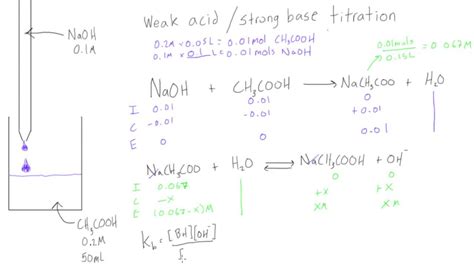 Weak acid / strong base titration
NaOH
0.1M
0.2M × 0.05L = 0.01mol CH₃COOH
0.1M × 0.1L = 0.01mols NaOH
0.01mols = 0.067M
0.15L
NaOH + CH₃COOH → NaCH₃COO + H₂O
I 0.01 0.01 0
C -0.01 -0.01 +0.01
E 0 0 0.01
NaCH₃COO + H₂O ⇌ NaCH₃COOH + OH⁻
I 0.067 0 0
C -x +x +x
E (0.067-x)M xM xM
CH₃COOH
0.2M
50mL
K_b = [BH][OH⁻]